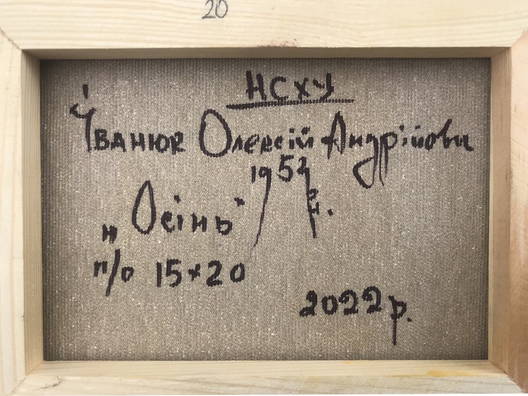 20
НСХУ
Іванюк Олексій Андрійови
1952 р.н.
„Осінь"
п/о 15×20
2022 р.